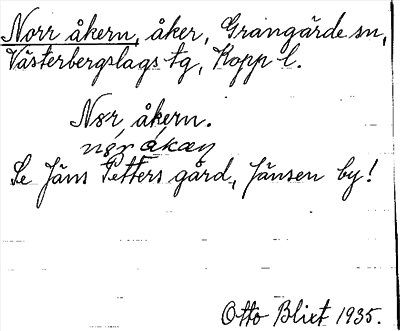 Norr åkern, åker, Grangärde sn,
Västerbergslags tg, Kopp l.
Nør, åkern.
Se Jäns Petters gård, Jänsen by!
Otto Blixt 1935.